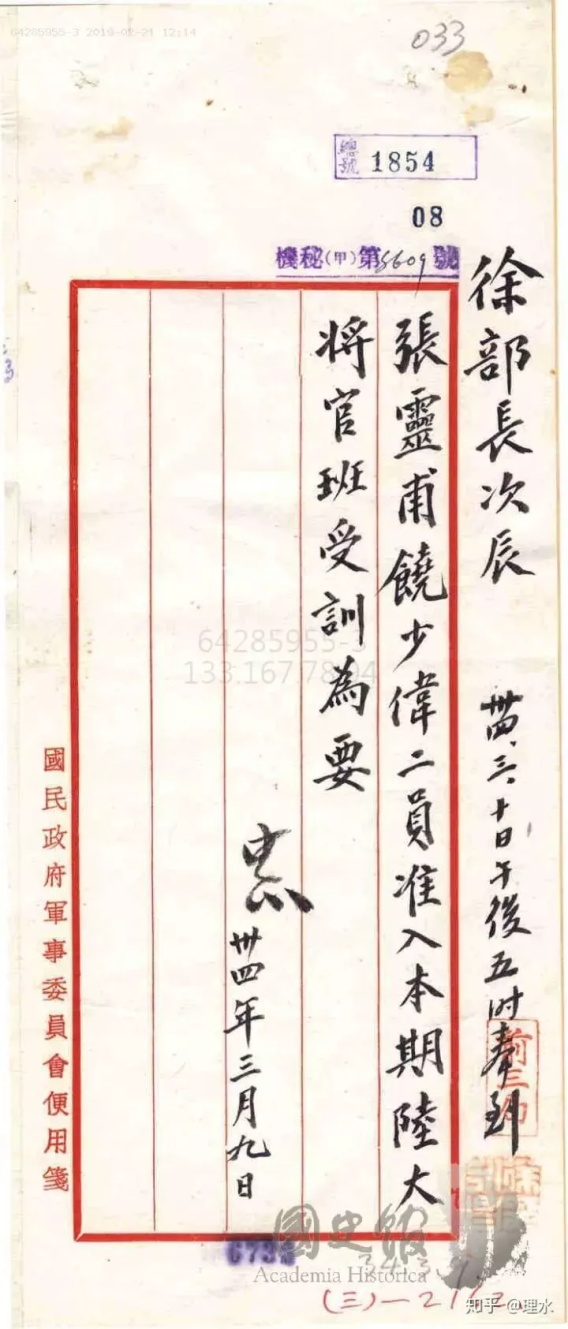 64285955-3 2019-02-21 12:14
033
總號 1854
08
機秘(甲)第5609號
徐部長次辰
卅四、三、十日午後五时奉到
張靈甫饒少偉二員准入本期陸大
將官班受訓為要
中正
卅四年三月九日
國民政府軍事委員會便用箋
64285955-3
133.167.78.94
國史館
Academia Historica
34.3.
(三)一21
知乎 @理水